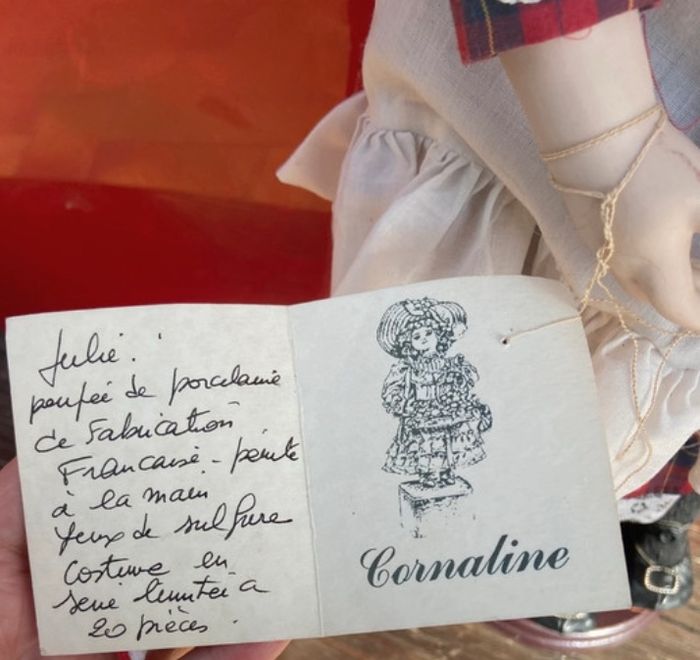 Julie.
poupée de porcelaine
de Fabrication
Française - peinte
à la main
Yeux de sulfure
Costume en
serie limitée a
20 pièces.
Cornaline